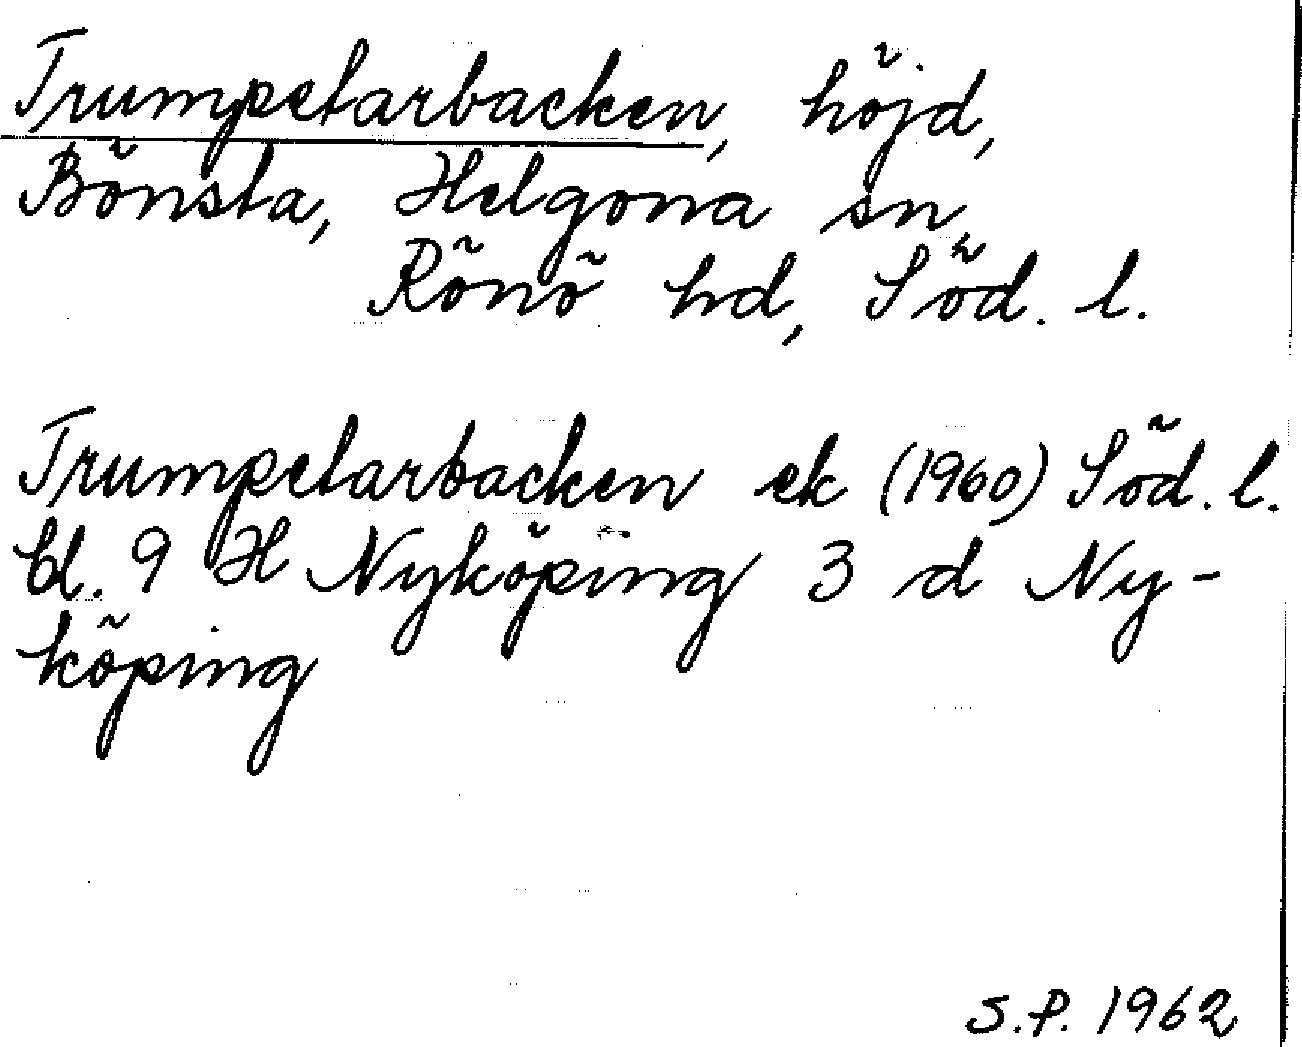 Trumpetarbacken, höjd,
Bönsta, Helgona sn,
Rönö hd, Söd. l.
Trumpetarbacken ek (1960) Söd. l.
bl. 9 H Nyköping 3 d Ny-
köping
S.P. 1962